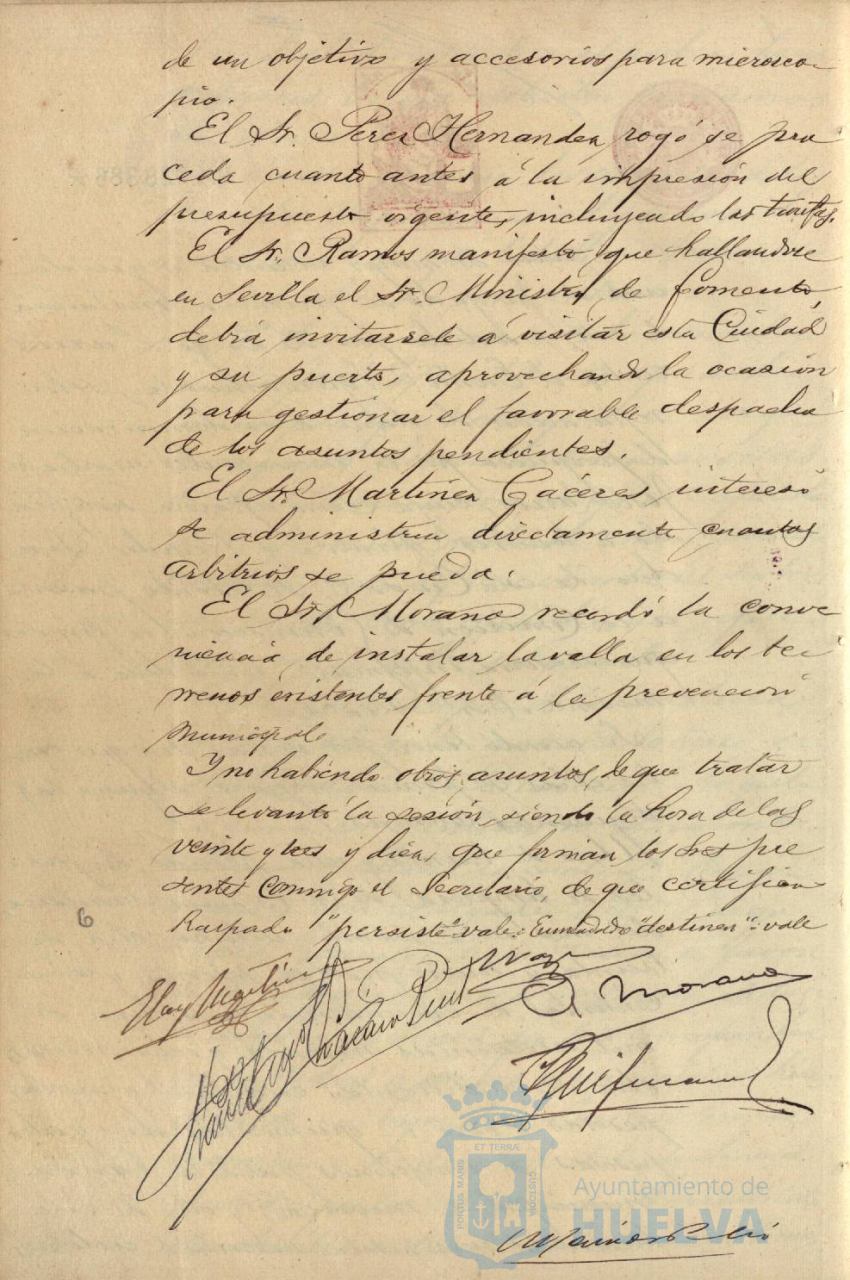 de un objetivo y accesorios para microsco-
pio.
El Sr. Perez Hernandez, rogó se pro
ceda cuanto antes á la impresión del
presupuesto vigente, incluyendo las tarifas.
El Sr. Ramos manifestó que hallandose
en Sevilla el Sr. Ministro, de Fomento,
debia invitarsele á visitar esta Ciudad
y su puerto, aprovechando la ocasión
para gestionar el favorable despacho
de los asuntos pendientes.
El Sr. Martinez Cáceres interesó
se administren directamente cuantos
arbitrios se pueda.
El Sr. Moraña recordó la conve
niencia de instalar la valla en los te
rrenos existentes frente á la prevención
municipal.
Y no habiendo otros asuntos de que tratar
se levantó la sesión, siendo la hora de las
veinte y tres y diez, que firman los Sres pre
sentes conmigo el Secretario, de que certifico=
Raspado "persiste" vale= Enmendado "destinen": vale
6
Eloy Martin
Moraña
ET TERRÆ
PORTUS MARIS
CUSTODIA
Ayuntamiento de
HUELVA